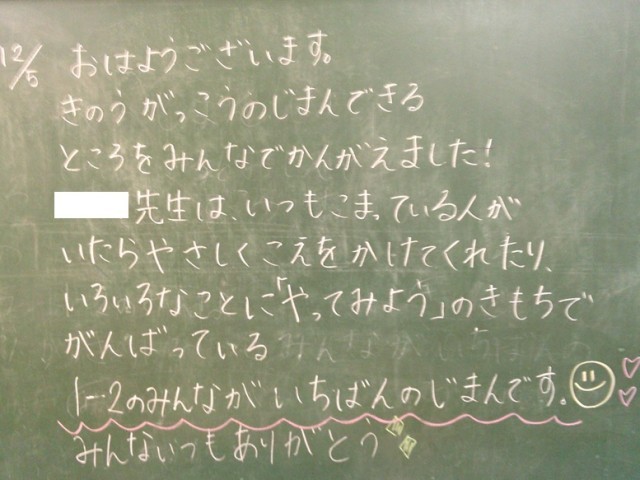 12/5 おはようございます。
きのう がっこうのじまんできる
ところをみんなでかんがえました!
先生は、いつもこまっている人が
いたらやさしくこえをかけてくれたり、
いろいろなことに「やってみよう」のきもちで
がんばっている
1-2のみんながいちばんのじまんです。
みんないつもありがとう